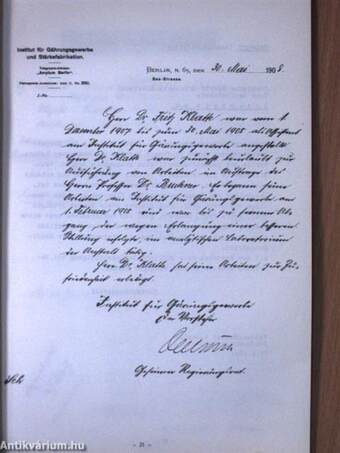 Institut für Gährungsgewerbe
und Stärkefabrikation.
Telegramm-Adresse:
„Amylum Berlin“.
BERLIN, N. 65, DEN 30. Mai 1908.
See-Strasse
J.-No.
Herr Dr. Fritz Klatte war vom 1.
Dezember 1907 bis zum 30. Mai 1908 als Assistent
am Institut für Gärungsgewerbe angestellt.
Herr Dr. Klatte war zunächst beauftragt zur
Ausführung von Arbeiten im Auftrage des
Herrn Professor Dr. Buchner. Er begann seine
Arbeiten am Institut für Gärungsgewerbe am
1. Februar 1908 und war bis zu seinem Ab-
gang der wegen Erlangung einer besseren
Stellung erfolgte im analytischen Laboratorium
der Anstalt tätig.
Herr Dr. Klatte hat seine Arbeiten zur Zu-
friedenheit erledigt.
Institut für Gärungsgewerbe
Der Vorsteher
Geheimer Regierungsrat.
- 21 -
Antikvárium.hu